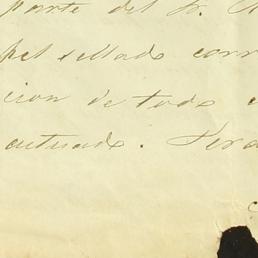 parte del Sr.
pel sellado corr
cion de todo
actuado. Perd